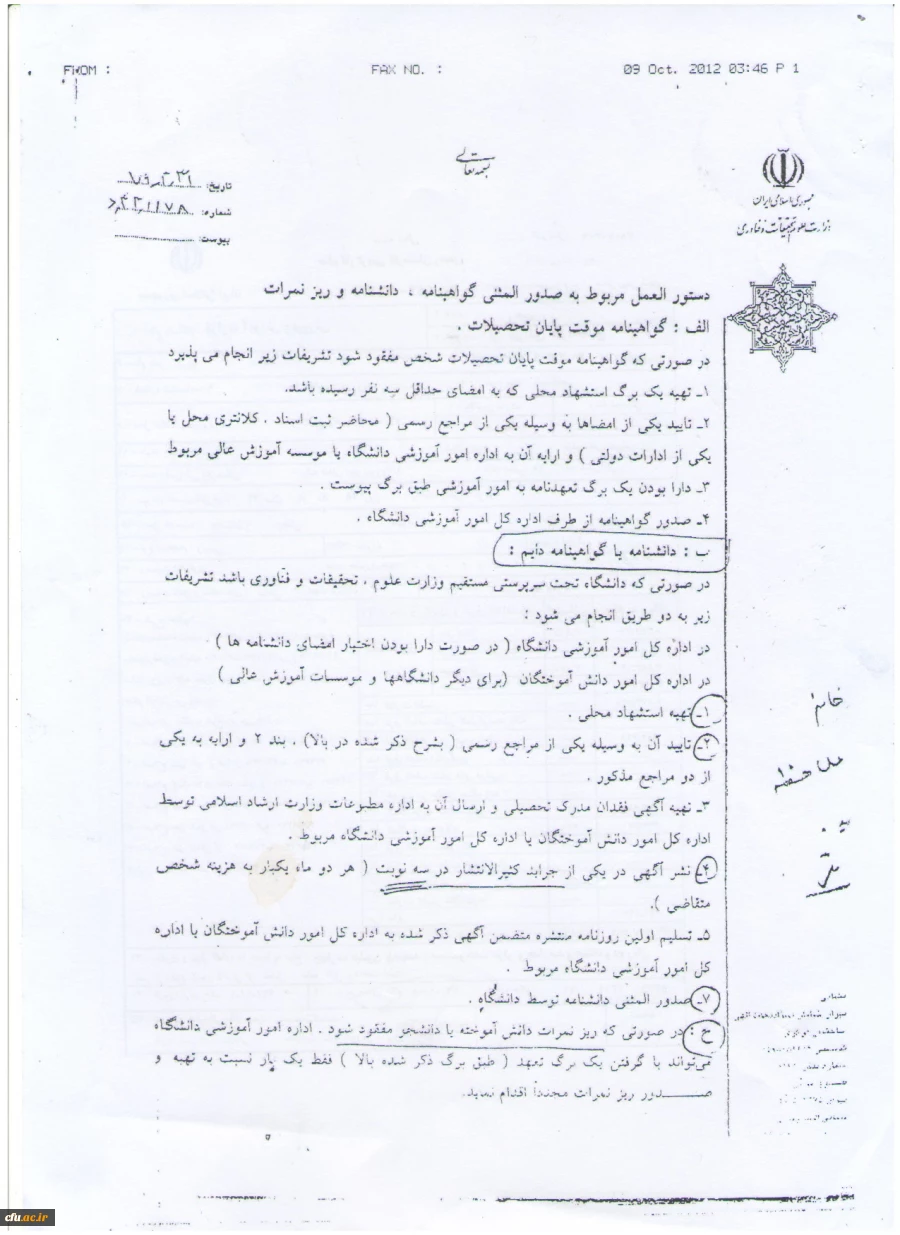 FROM :
FAX NO. :
09 Oct. 2012 03:46 P 1
بسمه تعالی
جمهوری اسلامی ایران
وزارت علوم، تحقیقات و فناوری
تاریخ:
شماره:
پیوست:
دستور العمل مربوط به صدور المثنی گواهینامه ، دانشنامه و ریز نمرات
الف : گواهینامه موقت پایان تحصیلات .
در صورتی که گواهینامه موقت پایان تحصیلات شخص مفقود شود تشریفات زیر انجام می پذیرد
۱ـ تهیه یک برگ استشهاد محلی که به امضای حداقل سه نفر رسیده باشد.
۲ـ تایید یکی از امضاها به وسیله یکی از مراجع رسمی ( محاضر ثبت اسناد ، کلانتری محل یا
یکی از ادارات دولتی ) و ارایه آن به اداره امور آموزشی دانشگاه یا موسسه آموزش عالی مربوط
۳ـ دارا بودن یک برگ تعهدنامه به امور آموزشی طبق برگ پیوست .
۴ـ صدور گواهینامه از طرف اداره کل امور آموزشی دانشگاه .
ب : دانشنامه یا گواهینامه دایم :
در صورتی که دانشگاه تحت سرپرستی مستقیم وزارت علوم ، تحقیقات و فناوری باشد تشریفات
زیر به دو طریق انجام می شود :
در اداره کل امور آموزشی دانشگاه ( در صورت دارا بودن اختیار امضای دانشنامه ها )
در اداره کل امور دانش آموختگان (برای دیگر دانشگاهها و موسسات آموزش عالی )
۱ـ تهیه استشهاد محلی .
۲ـ تایید آن به وسیله یکی از مراجع رسمی ( بشرح ذکر شده در بالا) ، بند ۲ و ارایه به یکی
از دو مراجع مذکور .
۳ـ تهیه آگهی فقدان مدرک تحصیلی و ارسال آن به اداره مطبوعات وزارت ارشاد اسلامی توسط
اداره کل امور دانش آموختگان یا اداره کل امور آموزشی دانشگاه مربوط .
۴ـ نشر آگهی در یکی از جراید کثیرالانتشار در سه نوبت ( هر دو ماه یکبار به هزینه شخص
متقاضی ).
۵ـ تسلیم اولین روزنامه منتشره متضمن آگهی ذکر شده به اداره کل امور دانش آموختگان یا اداره
کل امور آموزشی دانشگاه مربوط .
۷ـ صدور المثنی دانشنامه توسط دانشگاه .
ج : در صورتی که ریز نمرات دانش آموخته یا دانشجو مفقود شود . اداره امور آموزشی دانشگاه
می‌تواند با گرفتن یک برگ تعهد ( طبق برگ ذکر شده بالا ) فقط یک بار نسبت به تهیه و
صدور ریز نمرات مجدداً اقدام نماید.
خانم
cfu.ac.ir